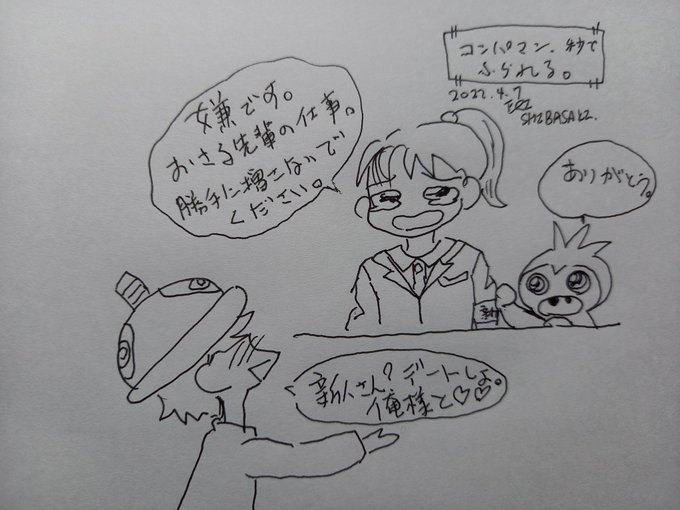 コンパマン、秒で
ふられる。
2022.4.7
ERI
SHIBASAKI.
嫌です。
おさる先輩の仕事。
勝手に増さないで
ください。
ありがとう。
新
新人さん?デートしよ。
俺様と♡♡